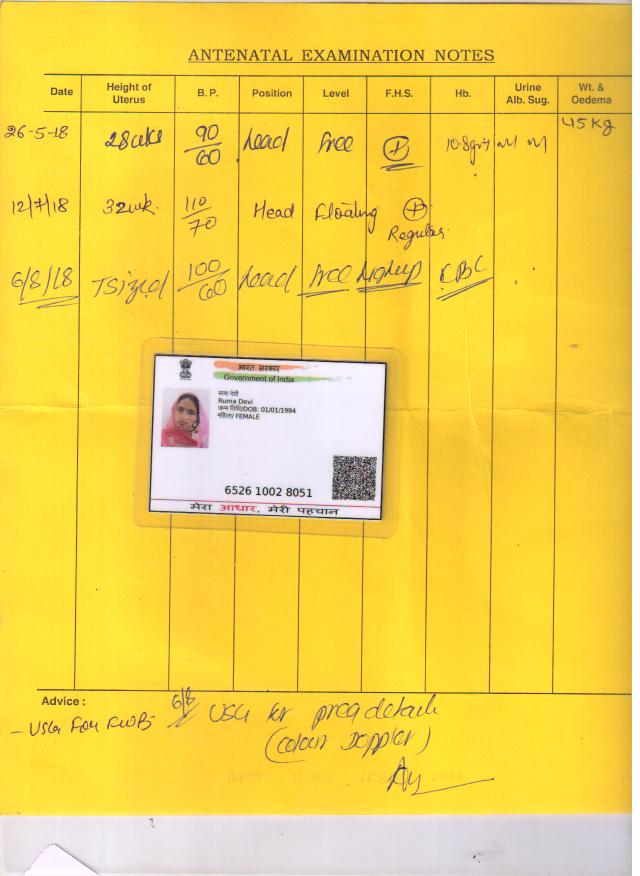 ANTENATAL EXAMINATION NOTES
Date Height of Uterus B. P. Position Level F.H.S. Hb. Urine Alb. Sug. Wt. & Oedema
26-5-18 28wks 90/60 head Free + 10.8gm 45 Kg
12/7/18 32wk. 110/70 Head Floating + Regular
6/8/18 TSized 100/60 head Free CBC
भारत सरकार
Government of India
Ruma Devi
जन्म तिथि/DOB: 01/01/1994
महिला/ FEMALE
6526 1002 8051
मेरा आधार, मेरी पहचान
Advice :
6/8 USG for preg details
- USG For FWB
(colour Doppler)